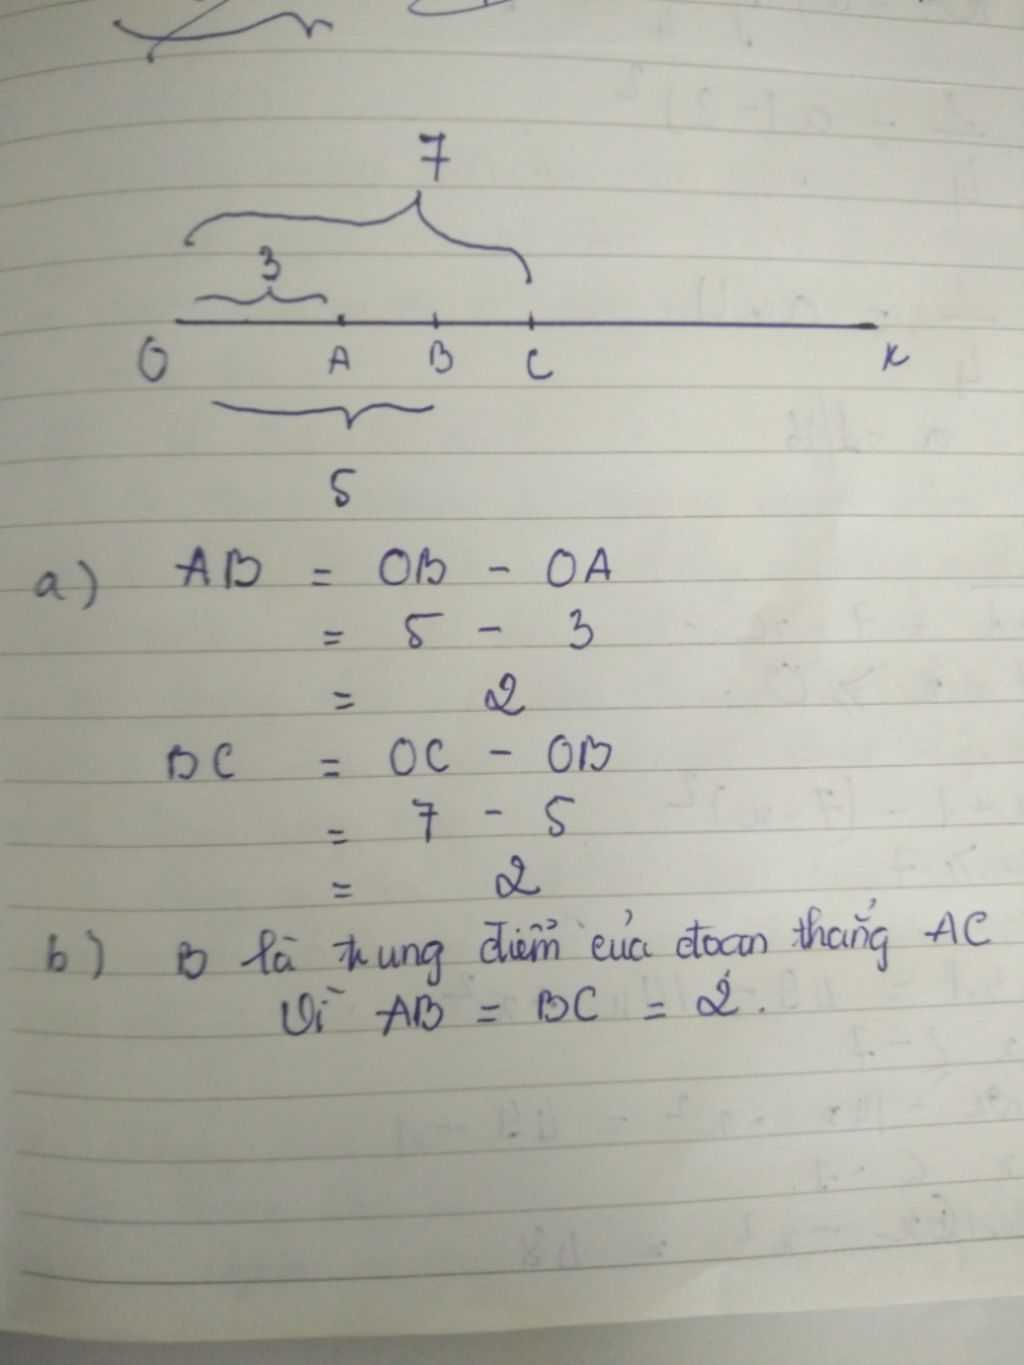 7
3
O A B C x
5
a) AB = OB - OA
= 5 - 3
= 2
BC = OC - OB
= 7 - 5
= 2
b) B là trung điểm của đoạn thẳng AC
Vì AB = BC = 2.